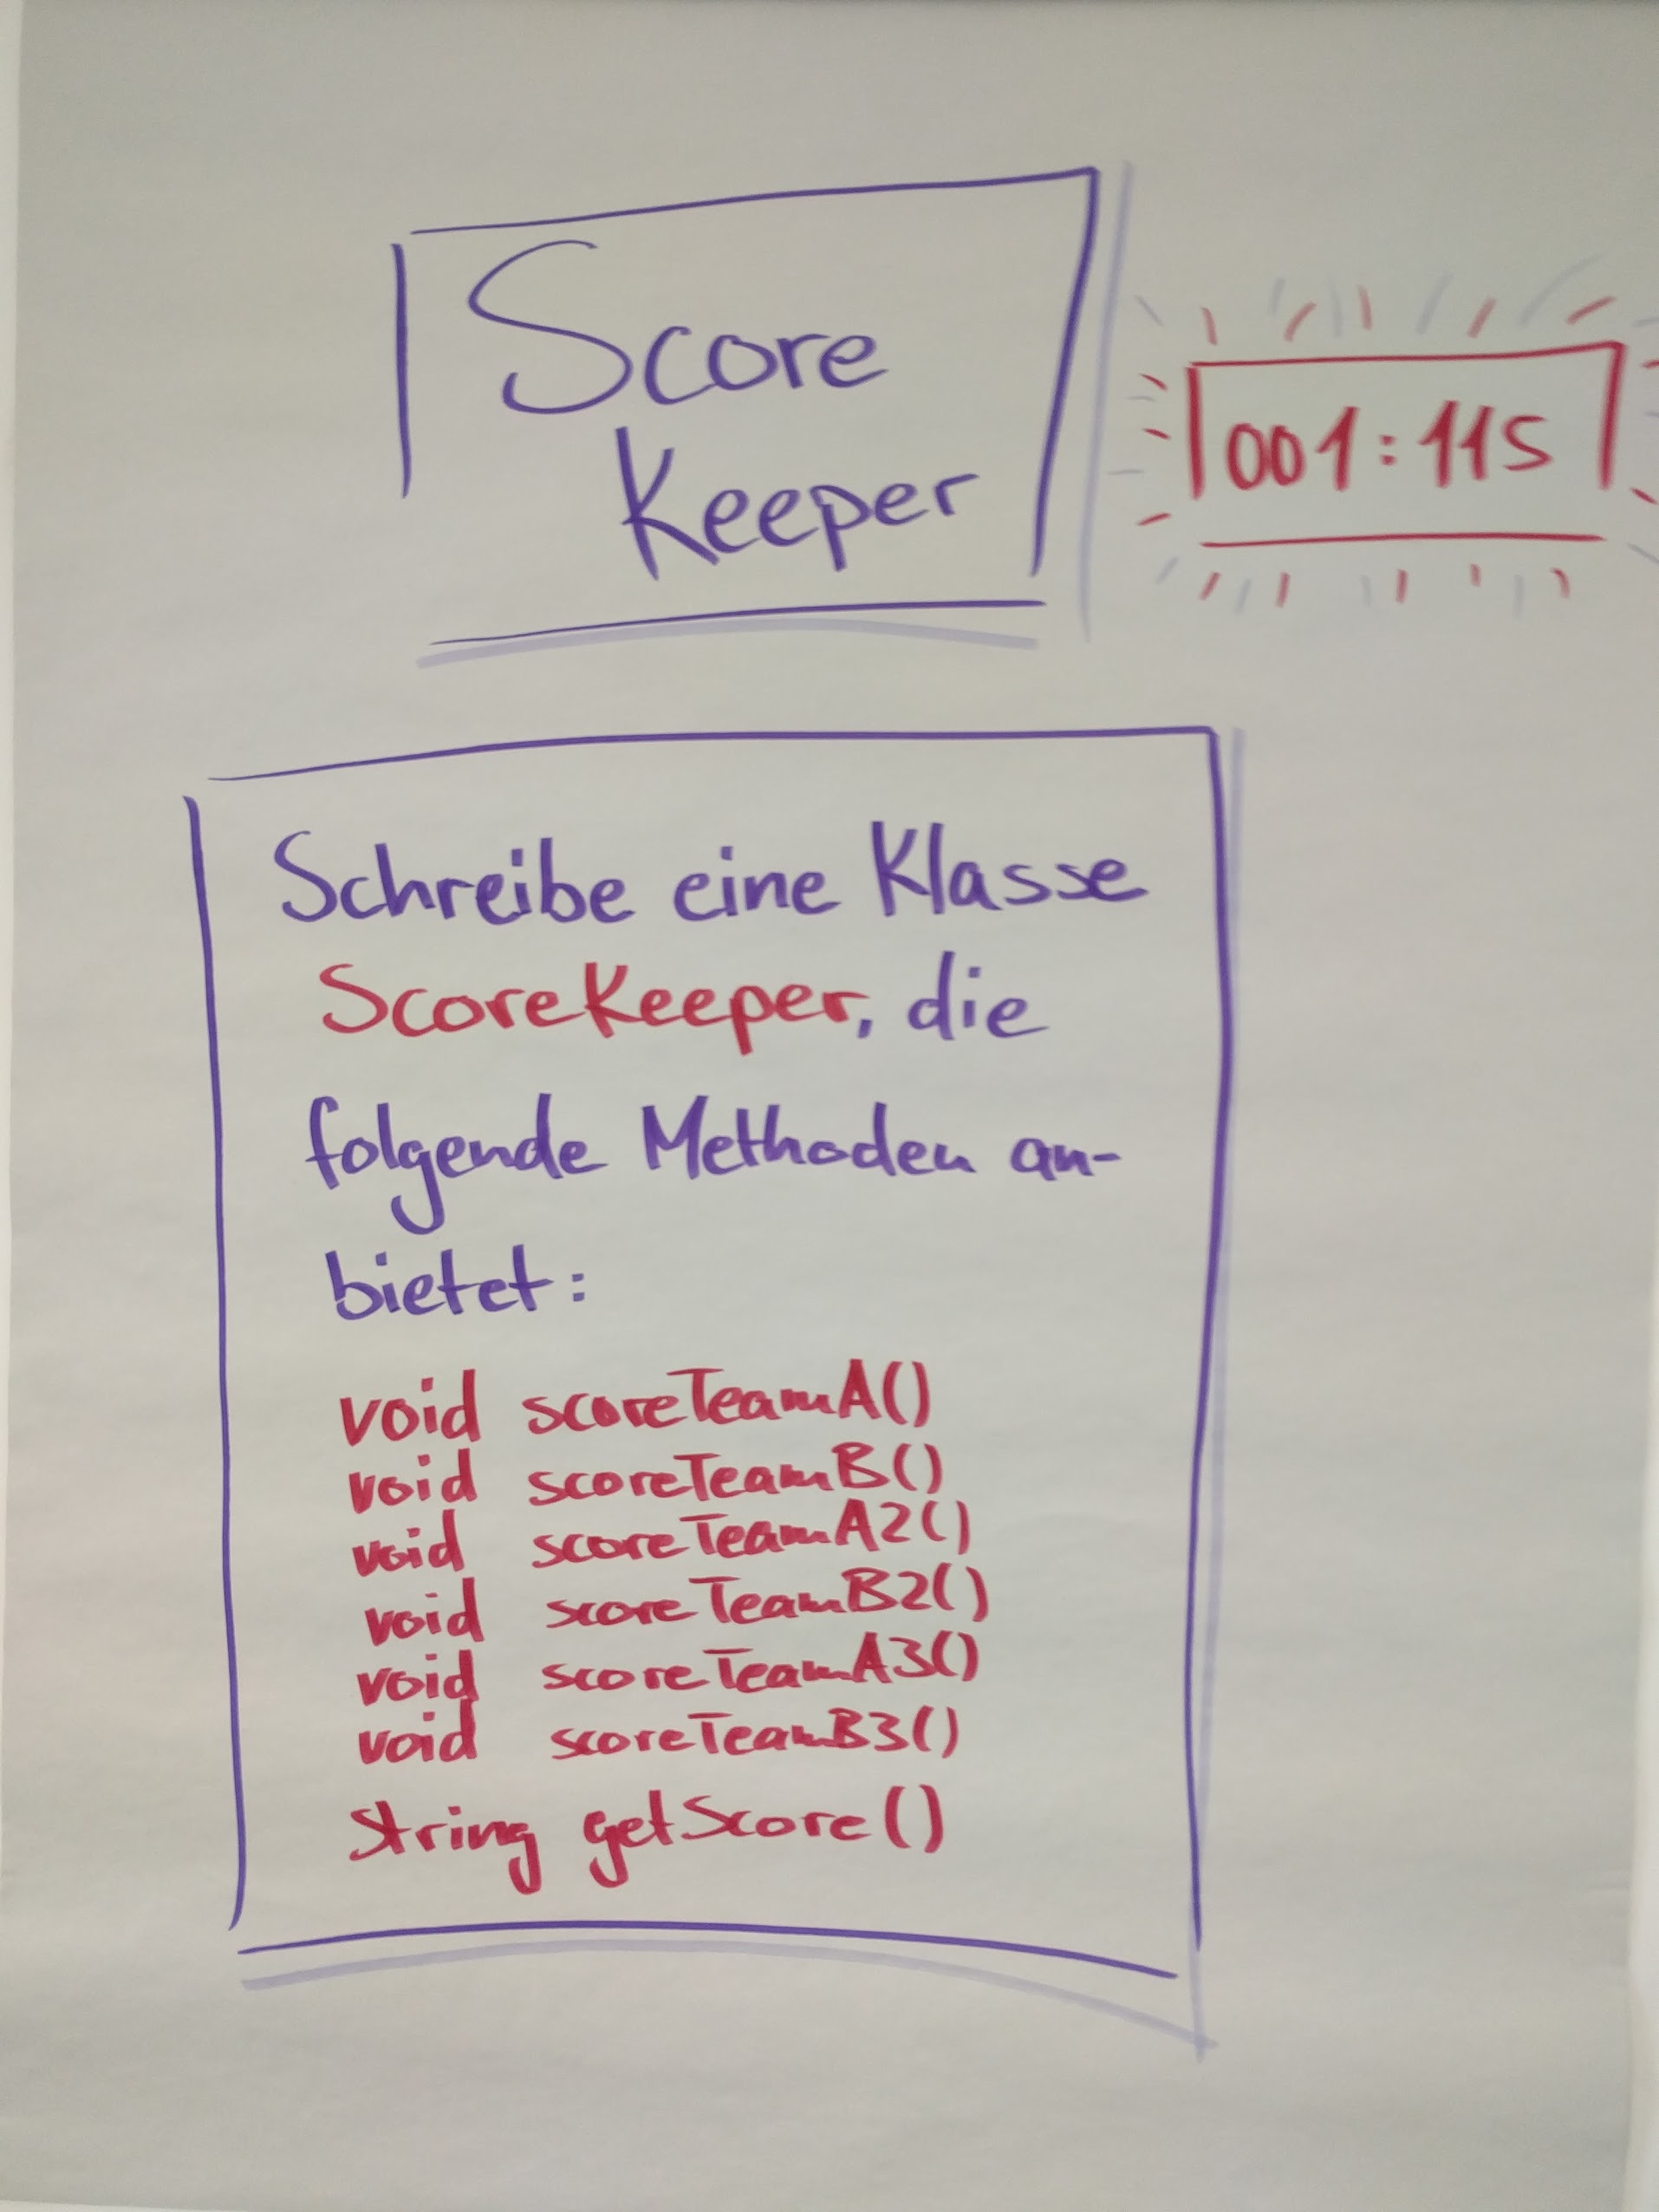 Score
Keeper
001:115
Schreibe eine Klasse
ScoreKeeper, die
folgende Methoden an-
bietet:
void scoreTeamA()
void scoreTeamB()
void scoreTeamA2()
void scoreTeamB2()
void scoreTeamA3()
void scoreTeamB3()
String getScore()